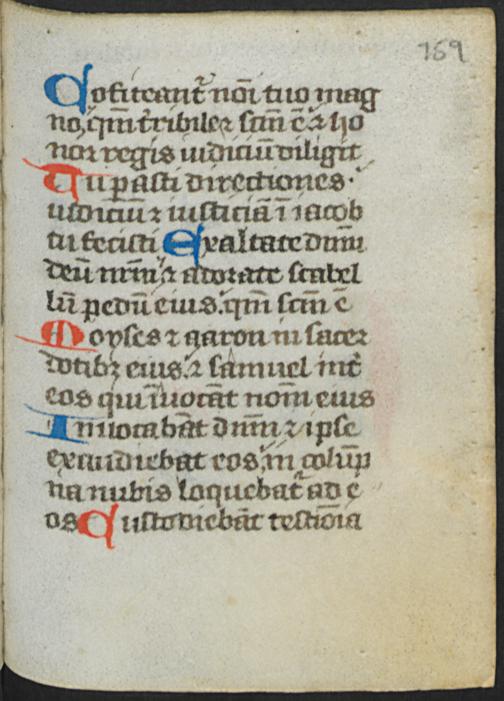 169
Cōfiteant᷑ nōi tuo mag
no, qm̄ t̄ribile ⁊ scm̄ ē ⁊ ho
nor regis iudiciū diligit
Tu parasti directiones.
iudiciū ⁊ iusticiā ī iacob
tu fecisti Exaltate dnm̄
deū nrm̄ ⁊ adorate scabel
lū pedū eius. qm̄ scm̄ ē
Moyses ⁊ aaron in sacer
dotibꝫ eius. ⁊ samuel int̄
eos qui īuocāt nom̄ eius
Inuocabāt dnm̄ ⁊ ipse
exaudiebat eos, in colūp
na nubis loquebat᷑ ad e
os Custodiebāt testiōia